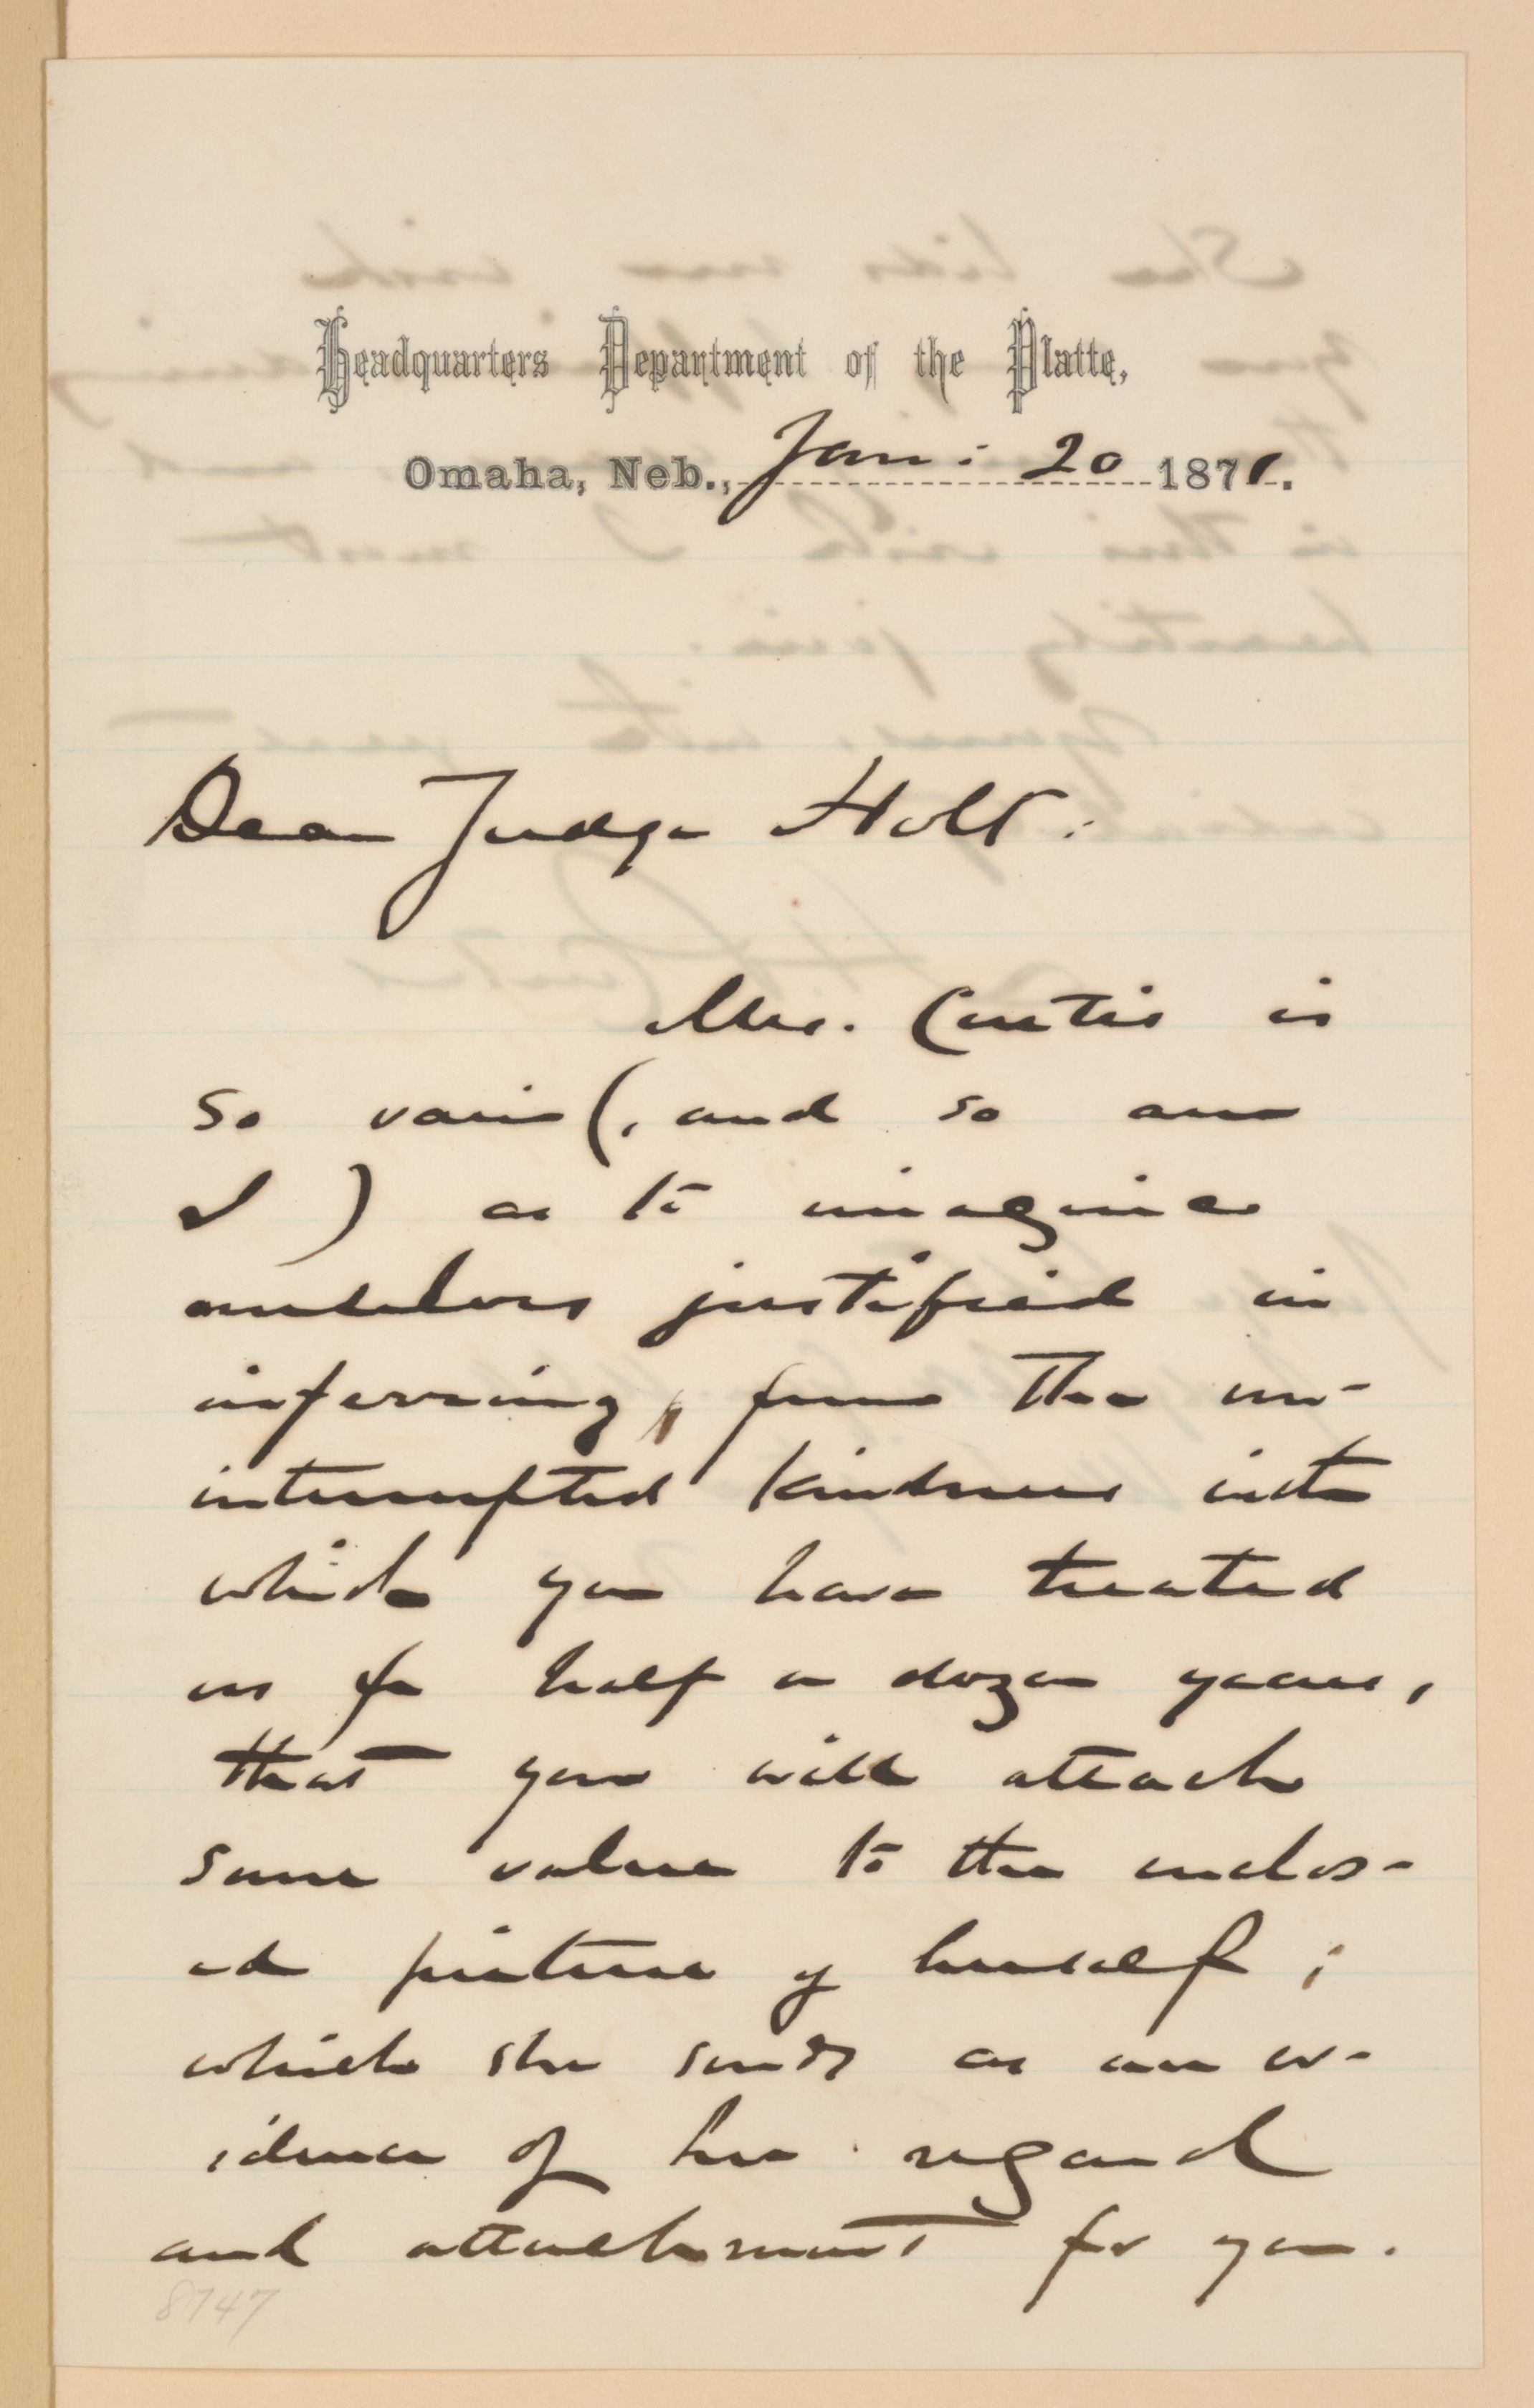 Headquarters Department of the Platte,
Omaha, Neb., Jan: 20 1871.
Dear Judge Holt:
Mrs. Curtis is
so vain (, and so am
I ) as to imagine
ourselves justified in
inferring, from the un-
interrupted kindness with
which you have treated
us for half a dozen years,
that you will attach
some value to the enclos-
ed picture of herself;
which she sends as an ev-
idence of her regard
and attachment for you.
8747